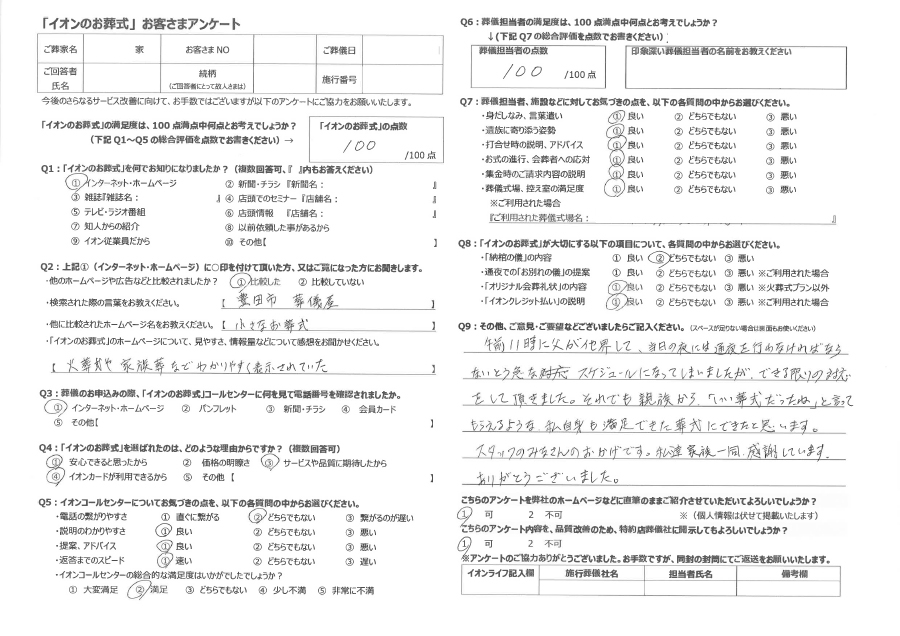 「イオンのお葬式」お客さまアンケート
ご葬家名 家 お客さまNO ご葬儀日
ご回答者氏名 続柄(ご回答者にとって故人さまは) 施行番号
今後のさらなるサービス改善に向けて、お手数ではございますが以下のアンケートにご協力をお願いいたします。
「イオンのお葬式」の満足度は、100点満点中何点とお考えでしょうか?
(下記Q1~Q5の総合評価を点数でお書きください) →
「イオンのお葬式」の点数
100 /100点
Q1:「イオンのお葬式」を何でお知りになりましたか?(複数回答可、『 』内もお答えください)
① インターネット・ホームページ ② 新聞・チラシ『新聞名: 』
③ 雑誌『雑誌名: 』 ④ 店頭でのセミナー『店舗名: 』
⑤ テレビ・ラジオ番組 ⑥ 店頭情報 『店舗名: 』
⑦ 知人からの紹介 ⑧ 以前依頼した事があるから
⑨ イオン従業員だから ⑩ その他【 】
Q2:上記①(インターネット・ホームページ)に○印を付けて頂いた方、又はご覧になった方にお聞きします。
・他のホームページや広告などと比較されましたか? ① 比較した ② 比較していない
・検索された際の言葉をお教えください。 【 豊田市 葬儀屋 】
・他に比較されたホームページ名をお教えください。【 小さなお葬式 】
・「イオンのお葬式」のホームページについて、見やすさ、情報量などについて感想をお聞かせください。
【 火葬式や家族葬などでわかりやすく表示されていた 】
Q3:葬儀のお申込みの際、「イオンのお葬式」コールセンターに何を見て電話番号を確認されましたか。
① インターネット・ホームページ ② パンフレット ③ 新聞・チラシ ④ 会員カード
⑤ その他【 】
Q4:「イオンのお葬式」を選ばれたのは、どのような理由からですか?(複数回答可)
① 安心できると思ったから ② 価格の明瞭さ ③ サービスや品質に期待したから
④ イオンカードが利用できるから ⑤ その他【 】
Q5:イオンコールセンターについてお気づきの点を、以下の各質問の中からお選びください。
・電話の繋がりやすさ ① 直ぐに繋がる ② どちらでもない ③ 繋がるのが遅い
・説明のわかりやすさ ① 良い ② どちらでもない ③ 悪い
・提案、アドバイス ① 良い ② どちらでもない ③ 悪い
・返答までのスピード ① 速い ② どちらでもない ③ 遅い
・イオンコールセンターの総合的な満足度はいかがでしたでしょうか?
① 大変満足 ② 満足 ③ どちらでもない ④ 少し不満 ⑤ 非常に不満
Q6:葬儀担当者の満足度は、100点満点中何点とお考えでしょうか?
↓(下記Q7の総合評価を点数でお書きください)
葬儀担当者の点数 印象深い葬儀担当者の名前をお教えください
100 /100点
Q7:葬儀担当者、施設などに対してお気づきの点を、以下の各質問の中からお選びください。
・身だしなみ、言葉遣い ① 良い ② どちらでもない ③ 悪い
・遺族に寄り添う姿勢 ① 良い ② どちらでもない ③ 悪い
・打合せ時の説明、アドバイス ① 良い ② どちらでもない ③ 悪い
・お式の進行、会葬者への応対 ① 良い ② どちらでもない ③ 悪い
・集金時のご請求内容の説明 ① 良い ② どちらでもない ③ 悪い
・葬儀式場、控え室の満足度 ① 良い ② どちらでもない ③ 悪い
※ご利用された場合
『ご利用された葬儀式場名: 』
Q8:「イオンのお葬式」が大切にする以下の項目について、各質問の中からお選びください。
・「納棺の儀」の内容 ① 良い ② どちらでもない ③ 悪い
・通夜での「お別れの儀」の提案 ① 良い ② どちらでもない ③ 悪い ※ご利用された場合
・「オリジナル会葬礼状」の内容 ① 良い ② どちらでもない ③ 悪い ※火葬式プラン以外
・「イオンクレジット払い」の説明 ① 良い ② どちらでもない ③ 悪い ※ご利用された場合
Q9:その他、ご意見・ご要望などございましたらご記入ください。(スペースが足りない場合は裏面もお使いください)
午前11時に父が他界して、当日の夜には通夜を行わなければなら
ないとう急な対応 スケジュールになってしまいましたが、できる限りの対応
をして頂きました。それでも親族から、「いい葬式だったね」と言って
もらえるような、私自身も満足できた葬式にできたと思います。
スタッフのみなさんのおかげです。私達家族一同、感謝しています。
ありがとうございました。
こちらのアンケートを弊社のホームページなどに直筆のままご紹介させていただいてよろしいでしょうか?
1 可 2 不可 ※(個人情報は伏せて掲載いたします)
こちらのアンケート内容を、品質改善のため、特約店葬儀社に開示してもよろしいでしょうか?
1 可 2 不可
※アンケートのご協力ありがとうございました。お手数ですが、同封の封筒にてご返送をお願いいたします。
イオンライフ記入欄 施行葬儀社名 担当者氏名 備考欄